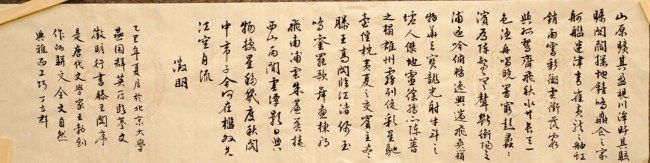 山原曠其盈視川澤盱其駭
矚閭閻撲地鐘鳴鼎食之家
舸艦迷津青雀黃龍之舳虹
銷雨霽彩徹雲衢落霞
與孤鶩齊飛秋水共長天一
色漁舟唱晚響窮彭蠡之
濱雁陣驚寒聲斷衡陽之
浦遙吟俯暢逸興遄飛爽籟
物華天寶龍光射牛斗之
墟人傑地靈徐孺下陳蕃
之榻雄州霧列俊彩星馳
臺隍枕夷夏之交賓主盡
滕王高閣臨江渚佩玉
鳴鸞罷歌舞畫棟朝
飛南浦雲朱簾暮捲
西山雨閒雲潭影日悠悠
物換星移幾度秋閣
中帝子今何在檻外長
江空自流
徵明
乙巳年夏月於北京大學
燕園群英臨摹文
徵明行書滕王閣序
是唐代文學家王勃創
作的駢文全文自然
典雅而工巧丁吉群